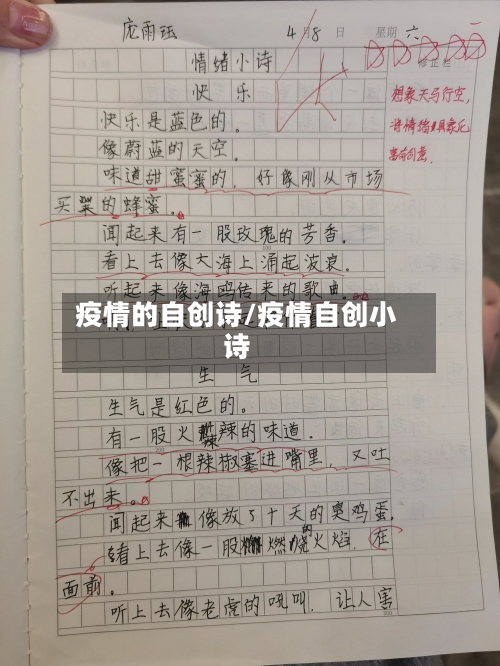 庞雨钰
4月8日 星期六
修正栏
情绪小诗
快乐
想象天马行空,
将情绪具象化
富有创意.
快乐是蓝色的。
像蔚蓝的天空.
味道甜蜜蜜的.好像刚从市场
买来的蜂蜜。
闻起来有一股玫瑰的芳香.
看上去像大海上涌起波浪.
听起来像海鸥传来的歌曲.
疫情的自创诗/疫情自创小
诗
生气
生气是红色的。
有一股火辣辣的味道.
像把一根辣椒塞进嘴里,又吐
不出来。
闻起来像放了十天的臭鸡蛋.
看上去像一股燃烧的火焰.在
面前。
听上去像老虎的吼叫.让人害